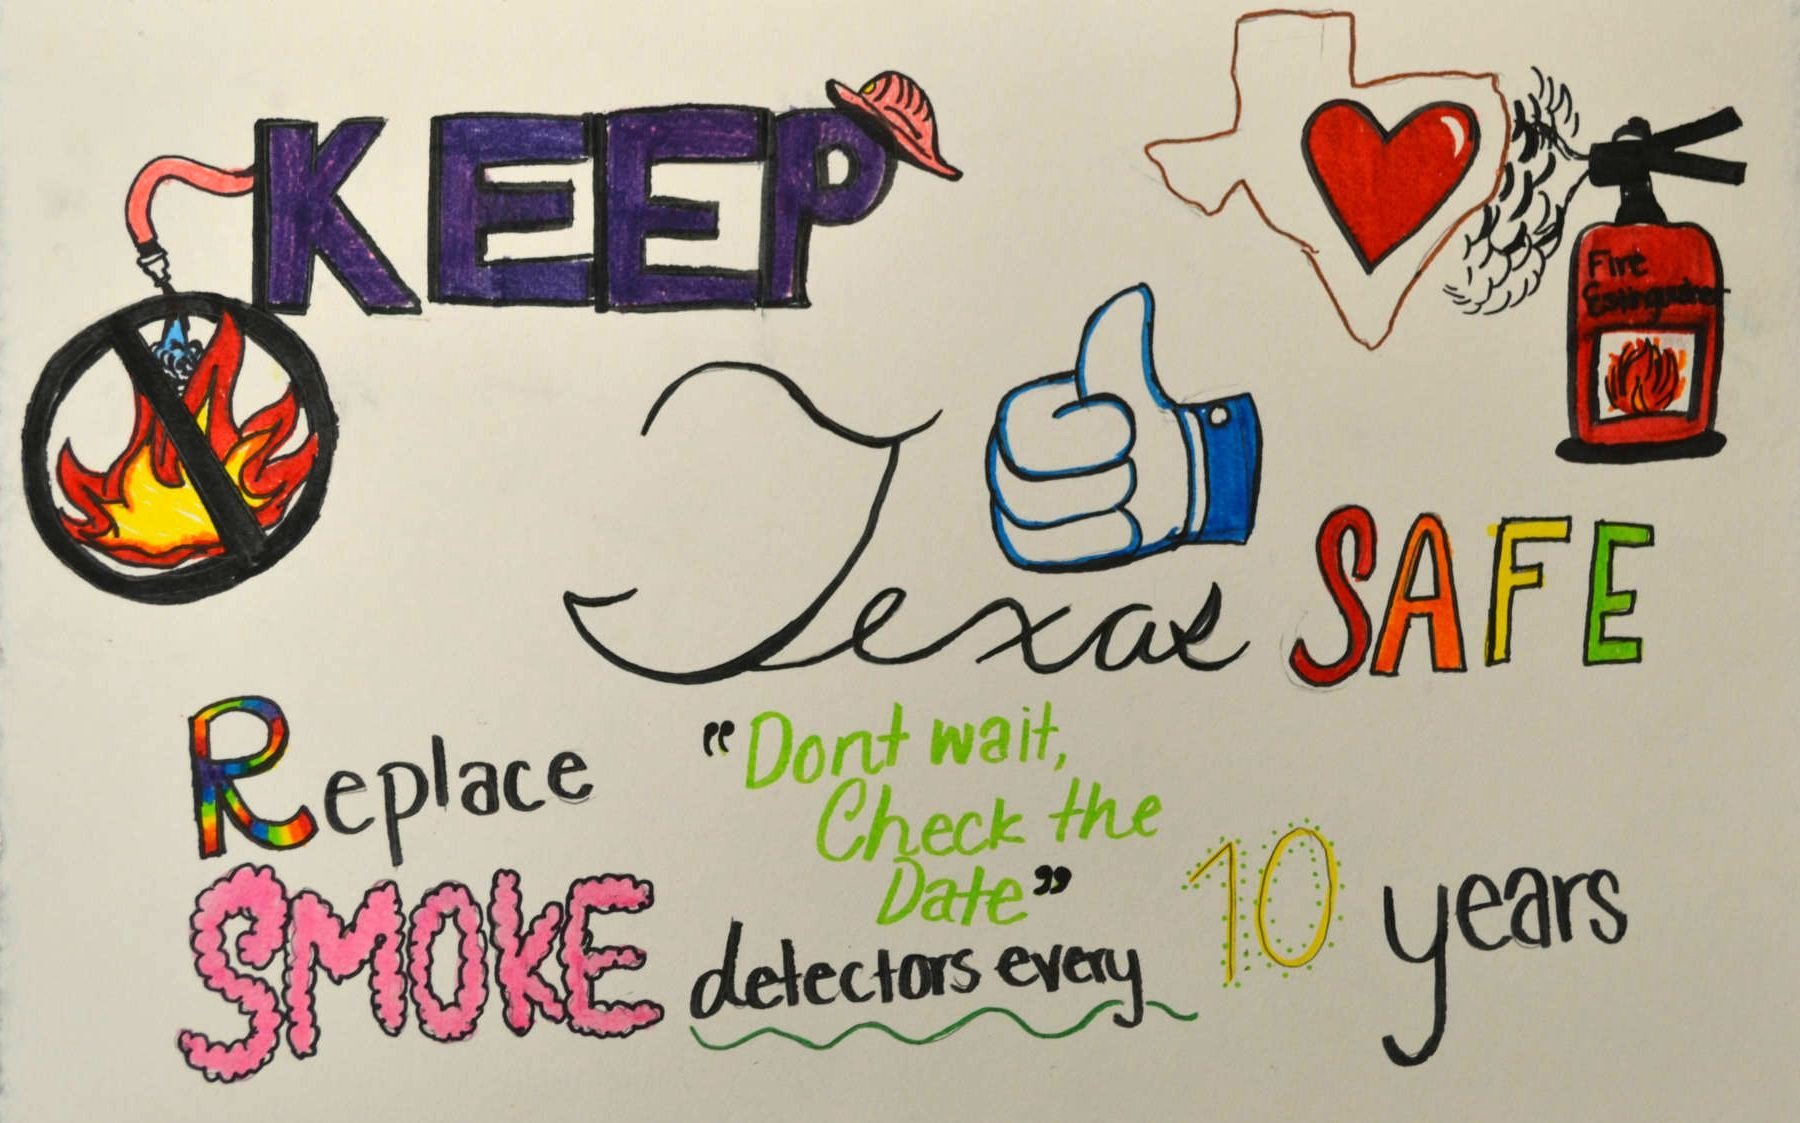 KEEP
Fire
Extinguisher
Texas SAFE
Replace
"Dont wait,
Check the
Date"
SMOKE detectors every 10 years